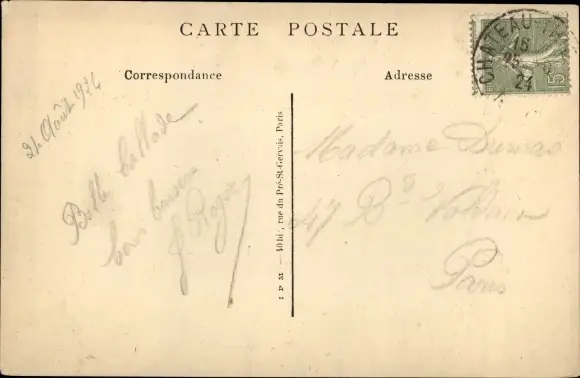 CARTE POSTALE
Correspondance
Adresse
CHATEAU-
15
25
24
15
Août 1924
Belle ballade
bons baisers
Roger
Madame Dumas
47 Bd Voltaire
Paris
I P M — 40 bis, rue du Pré-St-Gervais, Paris